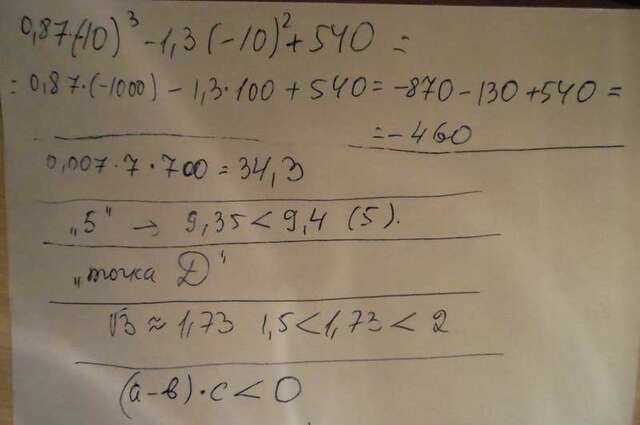 0,87(-10)³ - 1,3(-10)² + 540 =
= 0,87·(-1000) - 1,3·100 + 540 = -870 - 130 + 540 =
= -460
0,007·7·700 = 34,3
„5" → 9,35 < 9,4 (5).
„точка D"
√3 ≈ 1,73 1,5 < 1,73 < 2
(a-b)·c < 0